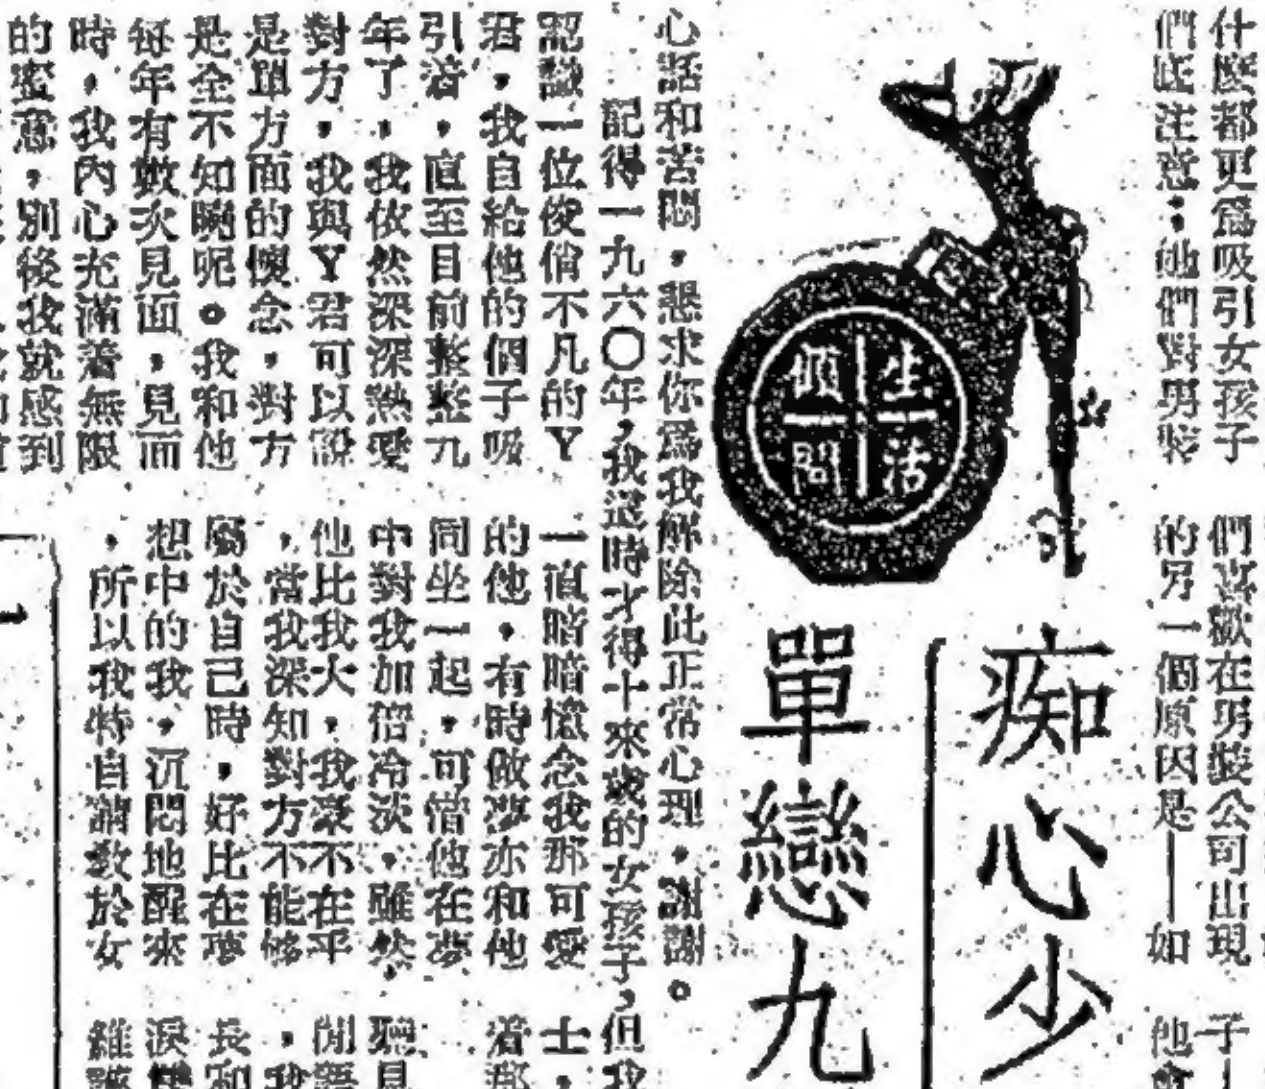 什麼都更爲吸引女孩子
們底注意；他們對男裝
們喜歡在男裝公司出現
的另一個原因是——如
子
他會
生活
顧問
痴心少
單戀九
心話和苦悶，懇求你爲我解除此正常心理，謝謝。
記得一九六〇年，我這時才得十來歲的女孩子，但我
認識一位俊俏不凡的Y
君，我自給他的個子吸
引着，直至目前整整九
年了，我依然深深熱愛
對方，我與Y君可以說
是單方面的懷念，對方
是全不知曉呢。我和他
每年有數次見面，見面
時，我內心充滿着無限
的蜜意，別後我就感到
一直暗暗憶念我那可愛
的他，有時做夢亦和他
同坐一起，可惜他在夢
中對我加倍冷淡，雖然
他比我大，我豪不在乎
，當我深知對方不能够
屬於自己時，好比在夢
想中的我，沉悶地醒來
，所以我特自請教於女
士，
着那
聽見
閒語
，我
長和
淚
雖